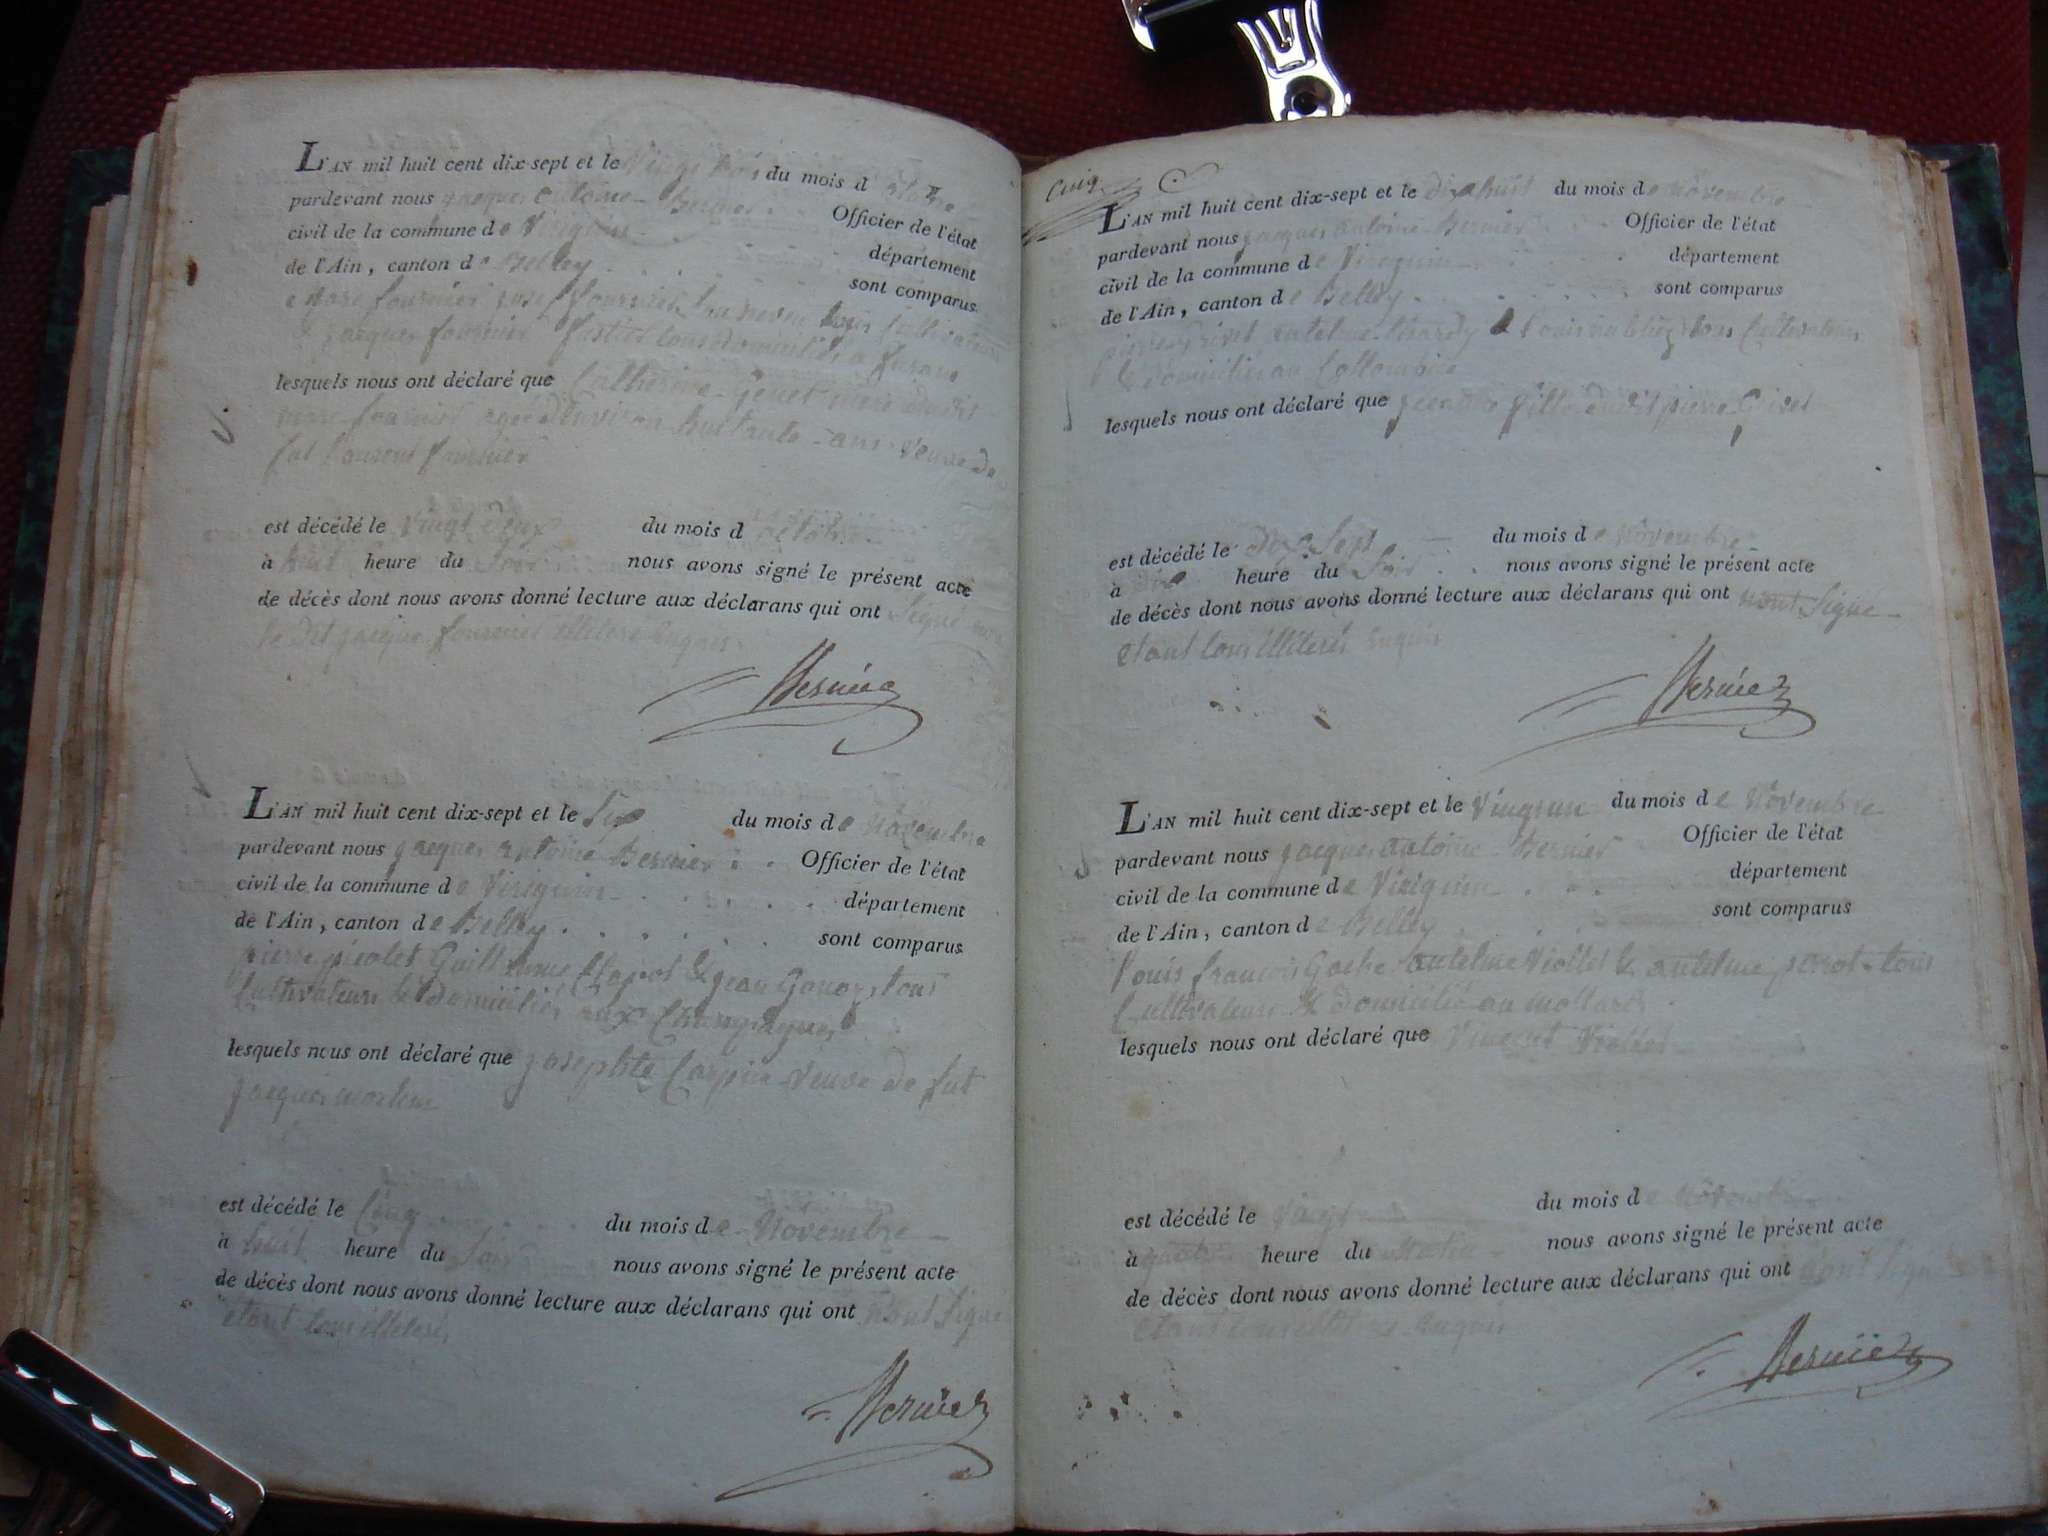 L'AN mil huit cent dix-sept et le Vingt trois du mois d octobre
pardevant nous jacques antoine Bernier Officier de l'état
civil de la commune de Virignin département
de l'Ain, canton de Belley sont comparus
marc fournier josef fournier son neveu tous Cultivateurs
& jacques fournier tous domiciliés a
lesquels nous ont déclaré que Catherine Genet mere dudit
marc fournier agée d'environ huitante ans Veuve de
fut Laurent fournier
est décédé le Vingt deux du mois d octobre
à huit heure du Soir nous avons signé le présent acte
de décès dont nous avons donné lecture aux déclarans qui ont Signé non
le dit jacque fournier illiteré Enquis
Bernier
L'AN mil huit cent dix-sept et le Six du mois de Novembre
pardevant nous jacques antoine Bernier Officier de l'état
civil de la commune de Virignin département
de l'Ain, canton de Belley sont comparus
pierre picolet Guillieume Clapot & jean Gonoz, tous
Cultivateurs & Domiciliés aux Champagnes
lesquels nous ont déclaré que josephte Carpin Veuve de fut
jacques
est décédé le Cinq du mois de Novembre
à huit heure du Soir nous avons signé le présent acte
de décès dont nous avons donné lecture aux déclarans qui ont nont Signé
etant tous illiterés
Bernier
Cinq
L'AN mil huit cent dix-sept et le dix huit du mois de Novembre
pardevant nous jacques antoine Bernier Officier de l'état
civil de la commune de Virignin département
de l'Ain, canton de Belley sont comparus
pierre antelme & Louis tous Cultivateurs
& domiciliés au Collombier
lesquels nous ont déclaré que fille du dit pierre
est décédé le dix Sept du mois de Novembre
à dix heure du Soir nous avons signé le présent acte
de décès dont nous avons donné lecture aux déclarans qui ont nont Signé
etant tous illiterés Enquis
Bernier
L'AN mil huit cent dix-sept et le Vingtun du mois de Novembre
pardevant nous jacques antoine Bernier Officier de l'état
civil de la commune de Virignin département
de l'Ain, canton de Belley sont comparus
Louis francois Gache antelme Viollet & antelme perrot tous
Cultivateurs & domicilié au mollard
lesquels nous ont déclaré que Vincent Viollet
est décédé le Vingt du mois de Novembre
à quatre heure du Matin nous avons signé le présent acte
de décès dont nous avons donné lecture aux déclarans qui ont nont Signé
etant tous Enquis
Bernier